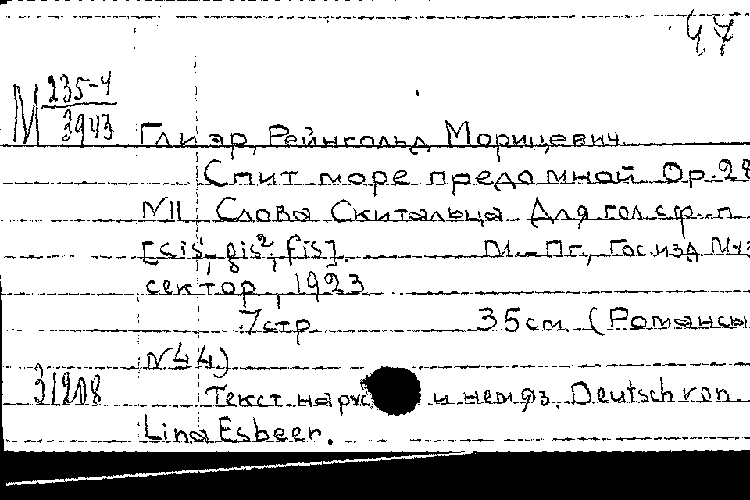 47
М 235-4
3943
Глиэр, Рейнгольд Морицевич
Спит море предо мной Ор.28
N11 Слова Скитальца Для гол. с ф.-п.
[cis¹, gis², fis]. М.-Пг., Гос. изд Муз
сектор, 1923
7 стр. 35 см (Романсы
N44)
31208 Текст на рус и нем яз. Deutsch von
Lina Esbeer.